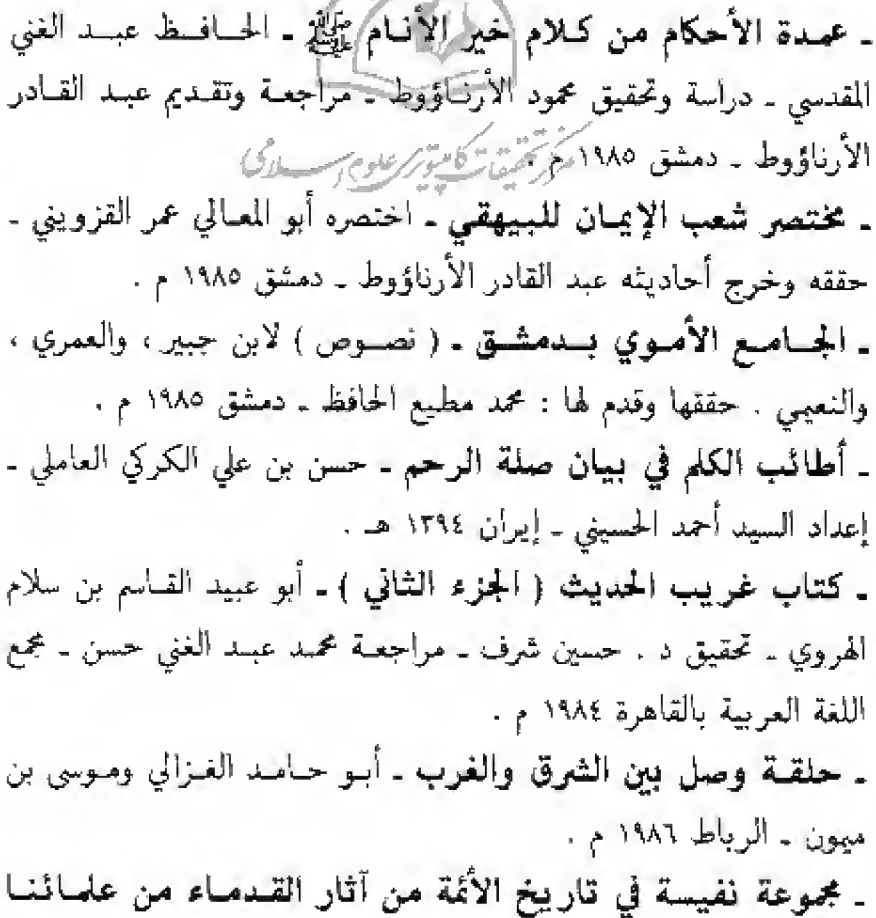 ـ عمدة الأحكام من كلام خير الأنام ﷺ ـ الحافظ عبد الغني
المقدسي ـ دراسة وتحقيق محمود الأرناؤوط ـ مراجعة وتقديم عبد القادر
الأرناؤوط ـ دمشق ١٩٨٥ م .
مرکز تحقیقات کامپیوتری علوم اسلامی
ـ مختصر شعب الإيمان للبيهقي ـ اختصره أبو المعالي عمر القزويني ـ
حققه وخرج أحاديثه عبد القادر الأرناؤوط ـ دمشق ١٩٨٥ م .
ـ الجامع الأموي بدمشق ـ ( نصوص ) لابن جبير ، والعمري ،
والنعيمي . حققها وقدم لها : محمد مطيع الحافظ ـ دمشق ١٩٨٥ م .
ـ أطائب الكلم في بيان صلة الرحم ـ حسن بن علي الكركي العاملي ـ
إعداد السيد أحمد الحسيني ـ إيران ١٣٩٤ هـ .
ـ كتاب غريب الحديث ( الجزء الثاني ) ـ أبو عبيد القاسم بن سلام
الهروي ـ تحقيق د . حسين شرف ـ مراجعة محمد عبد الغني حسن ـ مجمع
اللغة العربية بالقاهرة ١٩٨٤ م .
ـ حلقة وصل بين الشرق والغرب ـ أبو حامد الغزالي وموسى بن
ميمون ـ الرباط ١٩٨٦ م .
ـ مجموعة نفيسة في تاريخ الأئمة من آثار القدماء من علمائنا